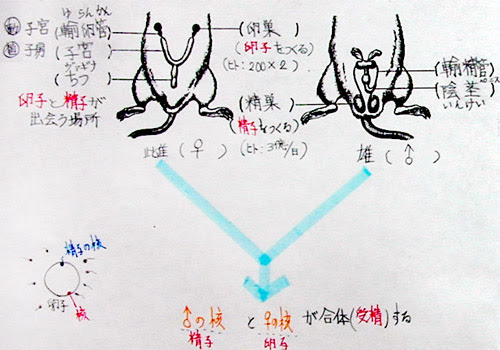 ゆらんかん
動 子宮(輸卵管)
植 子房(子宮)
(ちつ)
卵子と精子が
出会う場所
(卵巣)
(卵子をつくる)
(ヒト:200×2)
(精巣)
(精子をつくる)
(ヒト:3億/日)
(輸精管)
(陰茎)
いんけい
雌(♀)
雄(♂)
精子の核
卵子
核
♂の核 と ♀の核 が合体(受精)する
精子 卵子